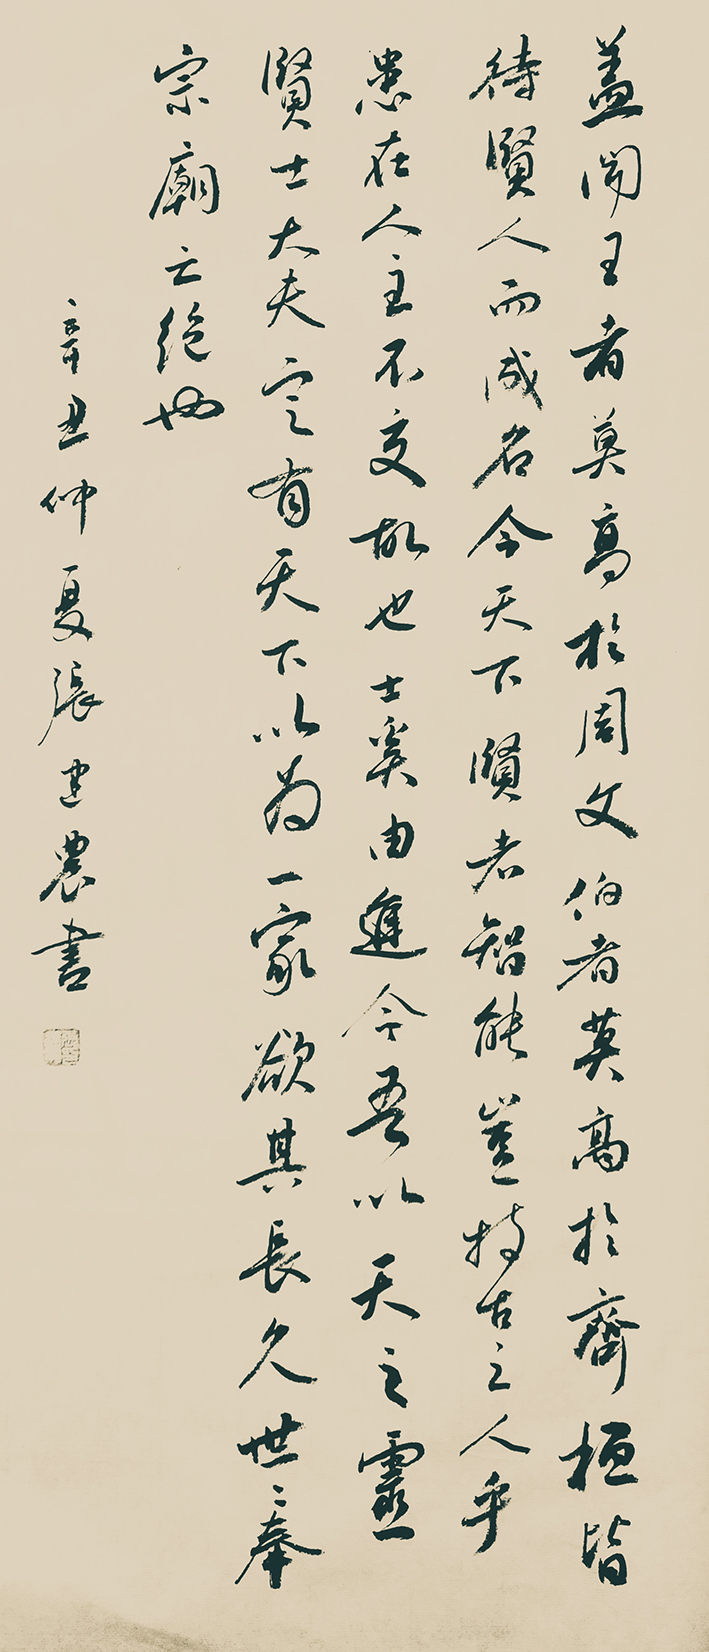 盖聞王者莫高於周文伯者莫高於齊桓皆
待賢人而成名今天下賢者智能豈特古之人乎
患在人主不交故也士奚由進今吾以天之靈
賢士大夫定有天下以為一家欲其長久世〻奉
宗廟亡絕也
辛丑仲夏張建農書